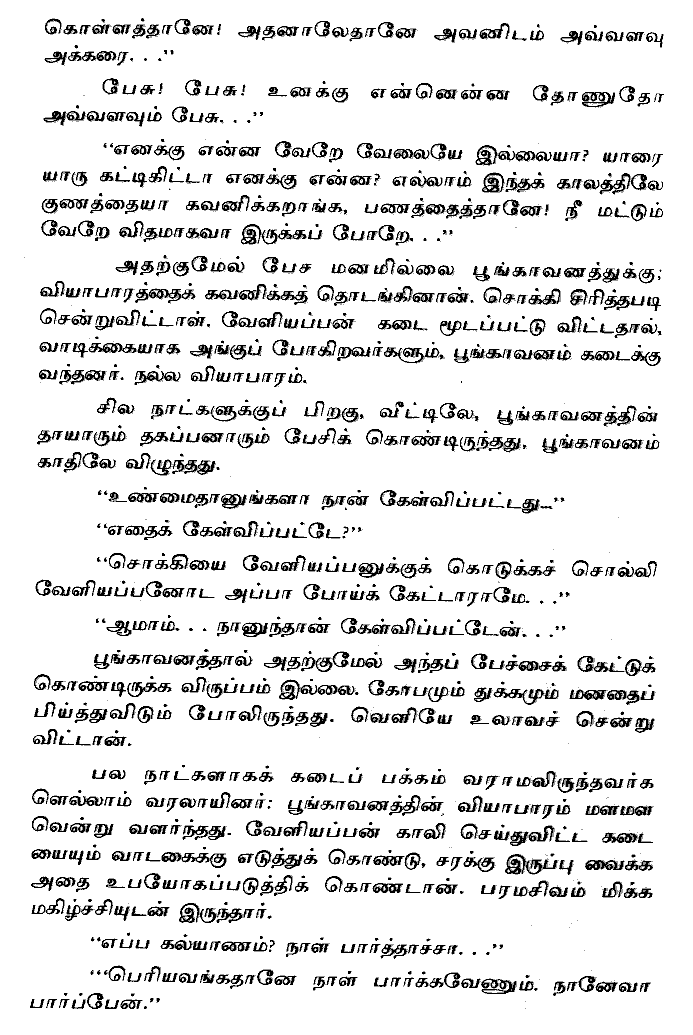 கொள்ளத்தானே! அதனாலேதானே அவனிடம் அவ்வளவு
அக்கரை. . .”
பேசு! பேசு! உனக்கு என்னென்ன தோணுதோ
அவ்வளவும் பேசு. . .”
“எனக்கு என்ன வேறே வேலையே இல்லையா? யாரை
யாரு கட்டிகிட்டா எனக்கு என்ன? எல்லாம் இந்தக் காலத்திலே
குணத்தையா கவனிக்கறாங்க, பணத்தைத்தானே! நீ மட்டும்
வேறே விதமாகவா இருக்கப் போறே. . .”
அதற்குமேல் பேச மனமில்லை பூங்காவனத்துக்கு;
வியாபாரத்தைக் கவனிக்கத் தொடங்கினான். சொக்கி சிரித்தபடி
சென்றுவிட்டாள். வேளியப்பன் கடை மூடப்பட்டு விட்டதால்,
வாடிக்கையாக அங்குப் போகிறவர்களும், பூங்காவனம் கடைக்கு
வந்தனர். நல்ல வியாபாரம்.
சில நாட்களுக்குப் பிறகு, வீட்டிலே, பூங்காவனத்தின்
தாயாரும் தகப்பனாரும் பேசிக் கொண்டிருந்தது, பூங்காவனம்
காதிலே விழுந்தது.
“உண்மைதானுங்களா நான் கேள்விப்பட்டது...”
“எதைக் கேள்விப்பட்டே?”
“சொக்கியை வேளியப்பனுக்குக் கொடுக்கச் சொல்லி
வேளியப்பனோட அப்பா போய்க் கேட்டாராமே. . .”
“ஆமாம். . . நானுந்தான் கேள்விப்பட்டேன். . .”
பூங்காவனத்தால் அதற்குமேல் அந்தப் பேச்சைக் கேட்டுக்
கொண்டிருக்க விருப்பம் இல்லை. கோபமும் துக்கமும் மனதைப்
பிய்த்துவிடும் போலிருந்தது. வெளியே உலாவச் சென்று
விட்டான்.
பல நாட்களாகக் கடைப் பக்கம் வராமலிருந்தவர்க
ளெல்லாம் வரலாயினர்: பூங்காவனத்தின் வியாபாரம் மளமள
வென்று வளர்ந்தது. வேளியப்பன் காலி செய்துவிட்ட கடை
யையும் வாடகைக்கு எடுத்துக் கொண்டு, சரக்கு இருப்பு வைக்க
அதை உபயோகப்படுத்திக் கொண்டான். பரமசிவம் மிக்க
மகிழ்ச்சியுடன் இருந்தார்.
“எப்ப கல்யாணம்? நாள் பார்த்தாச்சா. . .”
“‘பெரியவங்கதானே நாள் பார்க்கவேணும். நானேவா
பார்ப்பேன்.”